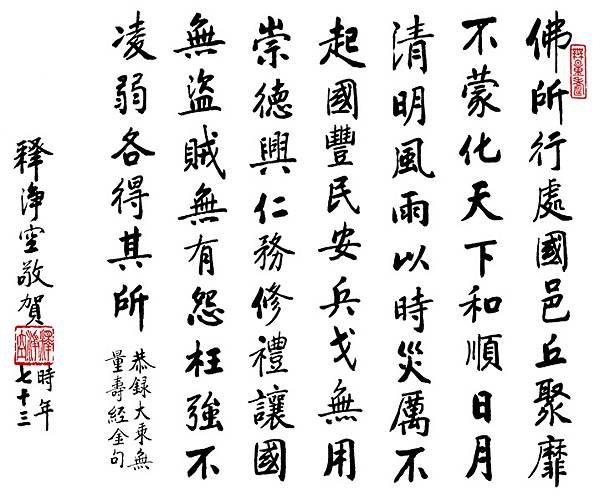 佛所行處國邑丘聚靡
不蒙化天下和順日月
清明風雨以時災厲不
起國豐民安兵戈無用
崇德興仁務修禮讓國
無盜賊無有怨枉強不
凌弱各得其所
恭録大乘無
量壽經金句
釋淨空敬賀
時年
七十三